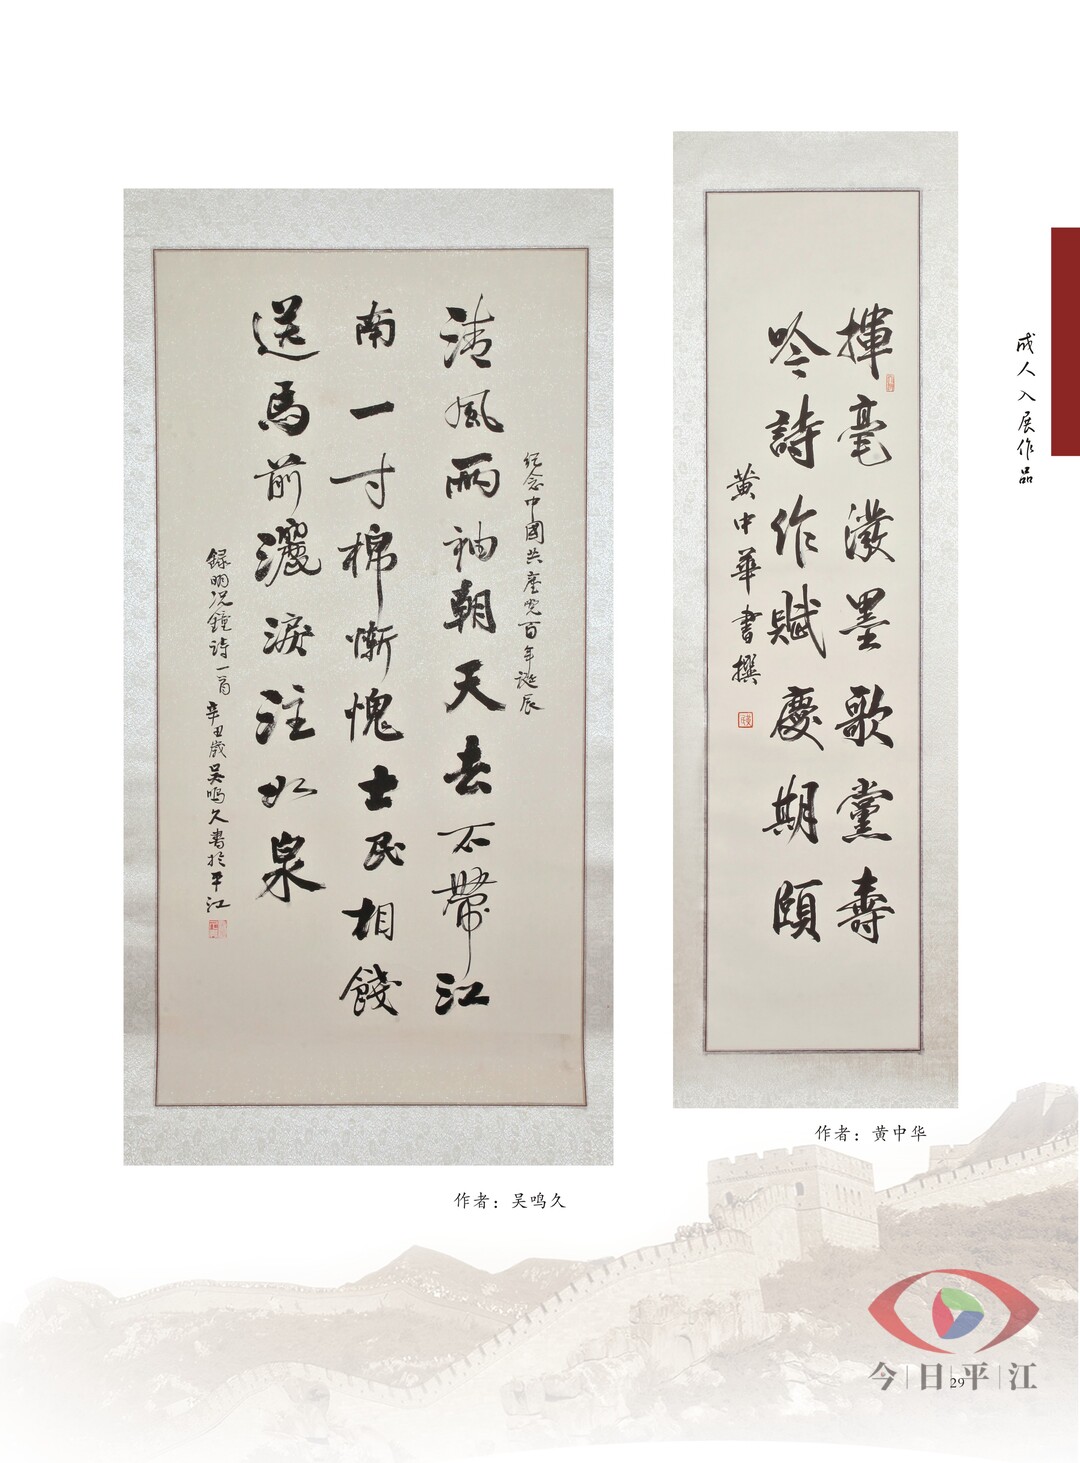 成人入展作品
揮毫潑墨歌黨壽
吟詩作賦慶期頤
黄中華書撰
作者：黄中华
纪念中國共產党百年诞辰
清風兩袖朝天去不帶江
南一寸棉慚愧士民相餞
送馬前灑淚注如泉
録明况鐘詩一首 辛丑歲吴鳴久書於平江
作者：吴鸣久
今日平江
29